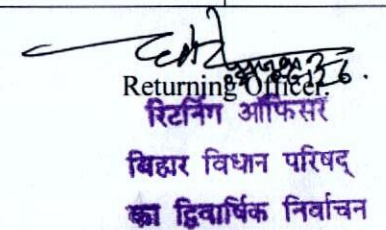 Returning Officer.
रिटर्निंग ऑफिसर
बिहार विधान परिषद्
का द्विवार्षिक निर्वाचन